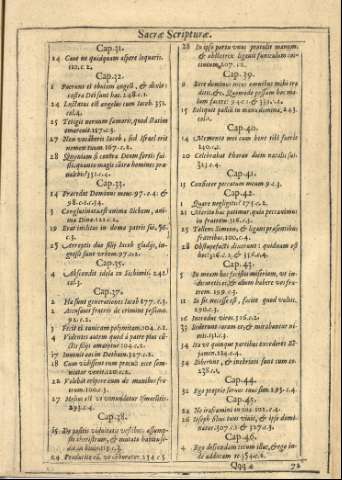 Sacræ Scripturæ.
Cap. 31.
24 Caue ne quidquam aspere loquaris.
110. c. 2.
Cap. 32.
1 Fuerunt ei obuiam angeli, & dixit:
castra Dei sunt hæc. 248. c. 1.
24 Luctatus est angelus cum Iacob. 351.
col. 4.
25 Tetigit neruum femoris, quod statim
emarcuit. 157. c. 3.
27 Non vocaberis Iacob, sed Israel erit
nomen tuum. 167. c. 2.
28 Quoniam si contra Deum fortis fuisti,
quanto magis contra homines præualebis?
351. c. 4.
Cap. 33.
14 Præcedat Dominus meus. 97. c. 4. &
98. c. 1. c. 34.
3 Conglutinata est anima Sichem, anima
Dinæ. 121. c. 2.
19 Erat inclitus in domo patris sui. 56.
c. 3.
25 Arreptis duo filij Iacob gladijs, ingressi
sunt vrbem. 97. c. 2.
Cap. 35.
4 Abscondit idola in Sichimis. 242.
col. 3.
Cap. 37.
2 Hæ sunt generationes Iacob 177. c. 3.
2 Accusauit fratres de crimine pessimo.
92. c. 2.
3 Fecit ei tunicam polymitam. 104. c. 2.
4 Videntes autem quod à patre plus cunctis
filijs amaretur 104. c. 2.
17 Inuenit eos in Dothain. 327. c. 2.
18 Cum vidissent eum procul: ecce somniator
venit. 120. c. 2.
22 Volebat eripere eum de manibus fratrum.
100. c. 3.
27 Melius est vt venundetur Ismaelitis.
293. c. 4.
Cap. 38.
24 Producite eam vt comburatur. 234. c. 3
28 In ipso partu vnus protulit manum,
& obstetrix ligauit funiculum coccineum.
307. c. 2.
Cap. 39.
8 Ecce dominus meus omnibus mihi traditis,
&c. Quomodo possum hoc malum
facere? 94. c. 1. & 331. c. 1.
15 Reliquit pallium in manu domina. 243.
col. 1.
Cap. 40.
14 Memento mei cum bene tibi fuerit
240. c. 2.
20 Celebrabat Pharao diem natalis sui.
323. c. 4.
Cap. 41.
Confiteor peccatum meum 9. c. 3.
Cap. 42.
1 Quare negligitis? 175. c. 2.
21 Merito hæc patimur, quia peccauimus
in fratrem. 316. c. 3.
25 Tollens Simeon, & ligans præsentibus
fratribus. 100. c. 4.
28 Obstupefacti dixerunt: quidnam est
hoc? 316. c. 1. & 356. c. 4.
Cap. 43.
In meam hoc fecistis miseriam, vt indicaretis
ei, & alium habere vos fratrem.
199. c. 3.
11 Si sic necesse est, facite quod vultis.
190. c. 3.
16 Introduc viros. 316. c. 2.
33 Sederunt coram eo, & mirabantur nimis.
31. c. 3.
34 Ita vt quinque partibus excederet Beniamin.
224. c. 4.
34 Biberunt, & inebriati sunt cum eo.
278. c. 1.
Cap. 44.
32 Ego proprie seruus tuus sim. 295. c. 4.
Cap. 45.
24 Ne irascamini in via. 102. c. 4.
26 Ioseph filius tuus viuit, & ipse dominatur.
307. c. 1. & 327. c. 3.
Cap. 46.
4 Ego descendam tecum illuc, & ego inde
adducam te. 354. c. 2.
Qqq 4